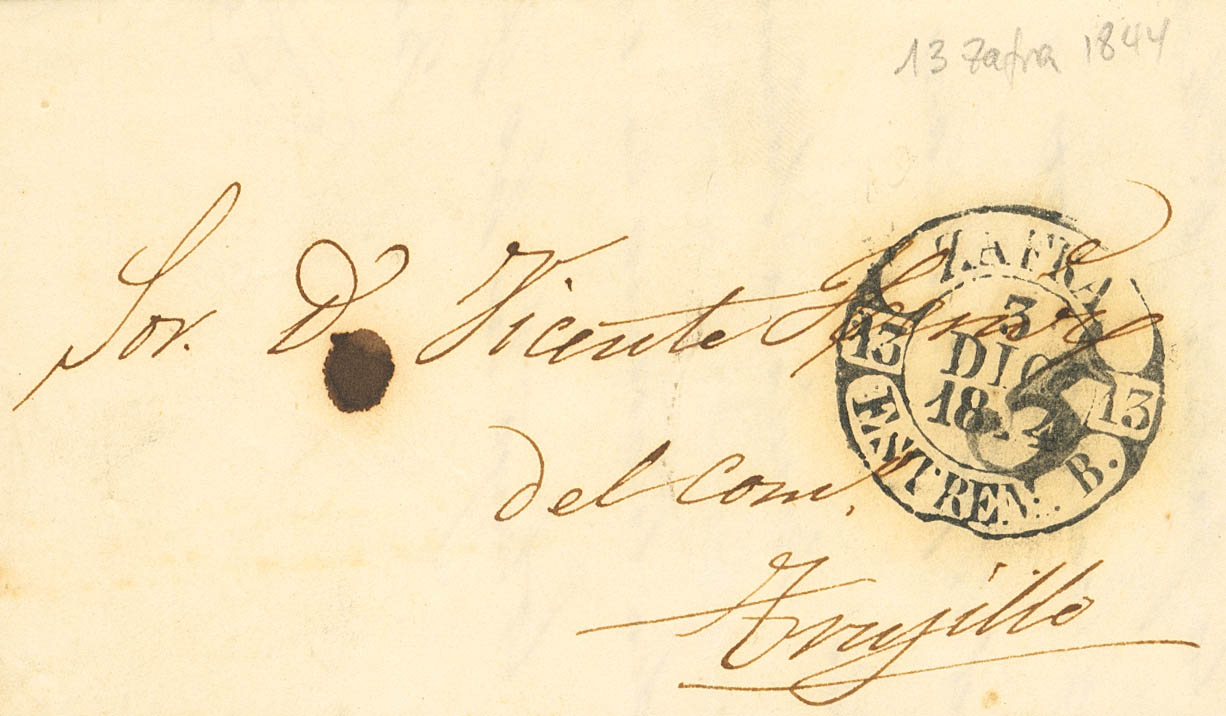 13 Zafra 1844
Sor. Dn Vicente
del Com.
Trujillo
ZAFRA
3
DIC
1844
13 13
ESTREM. B.